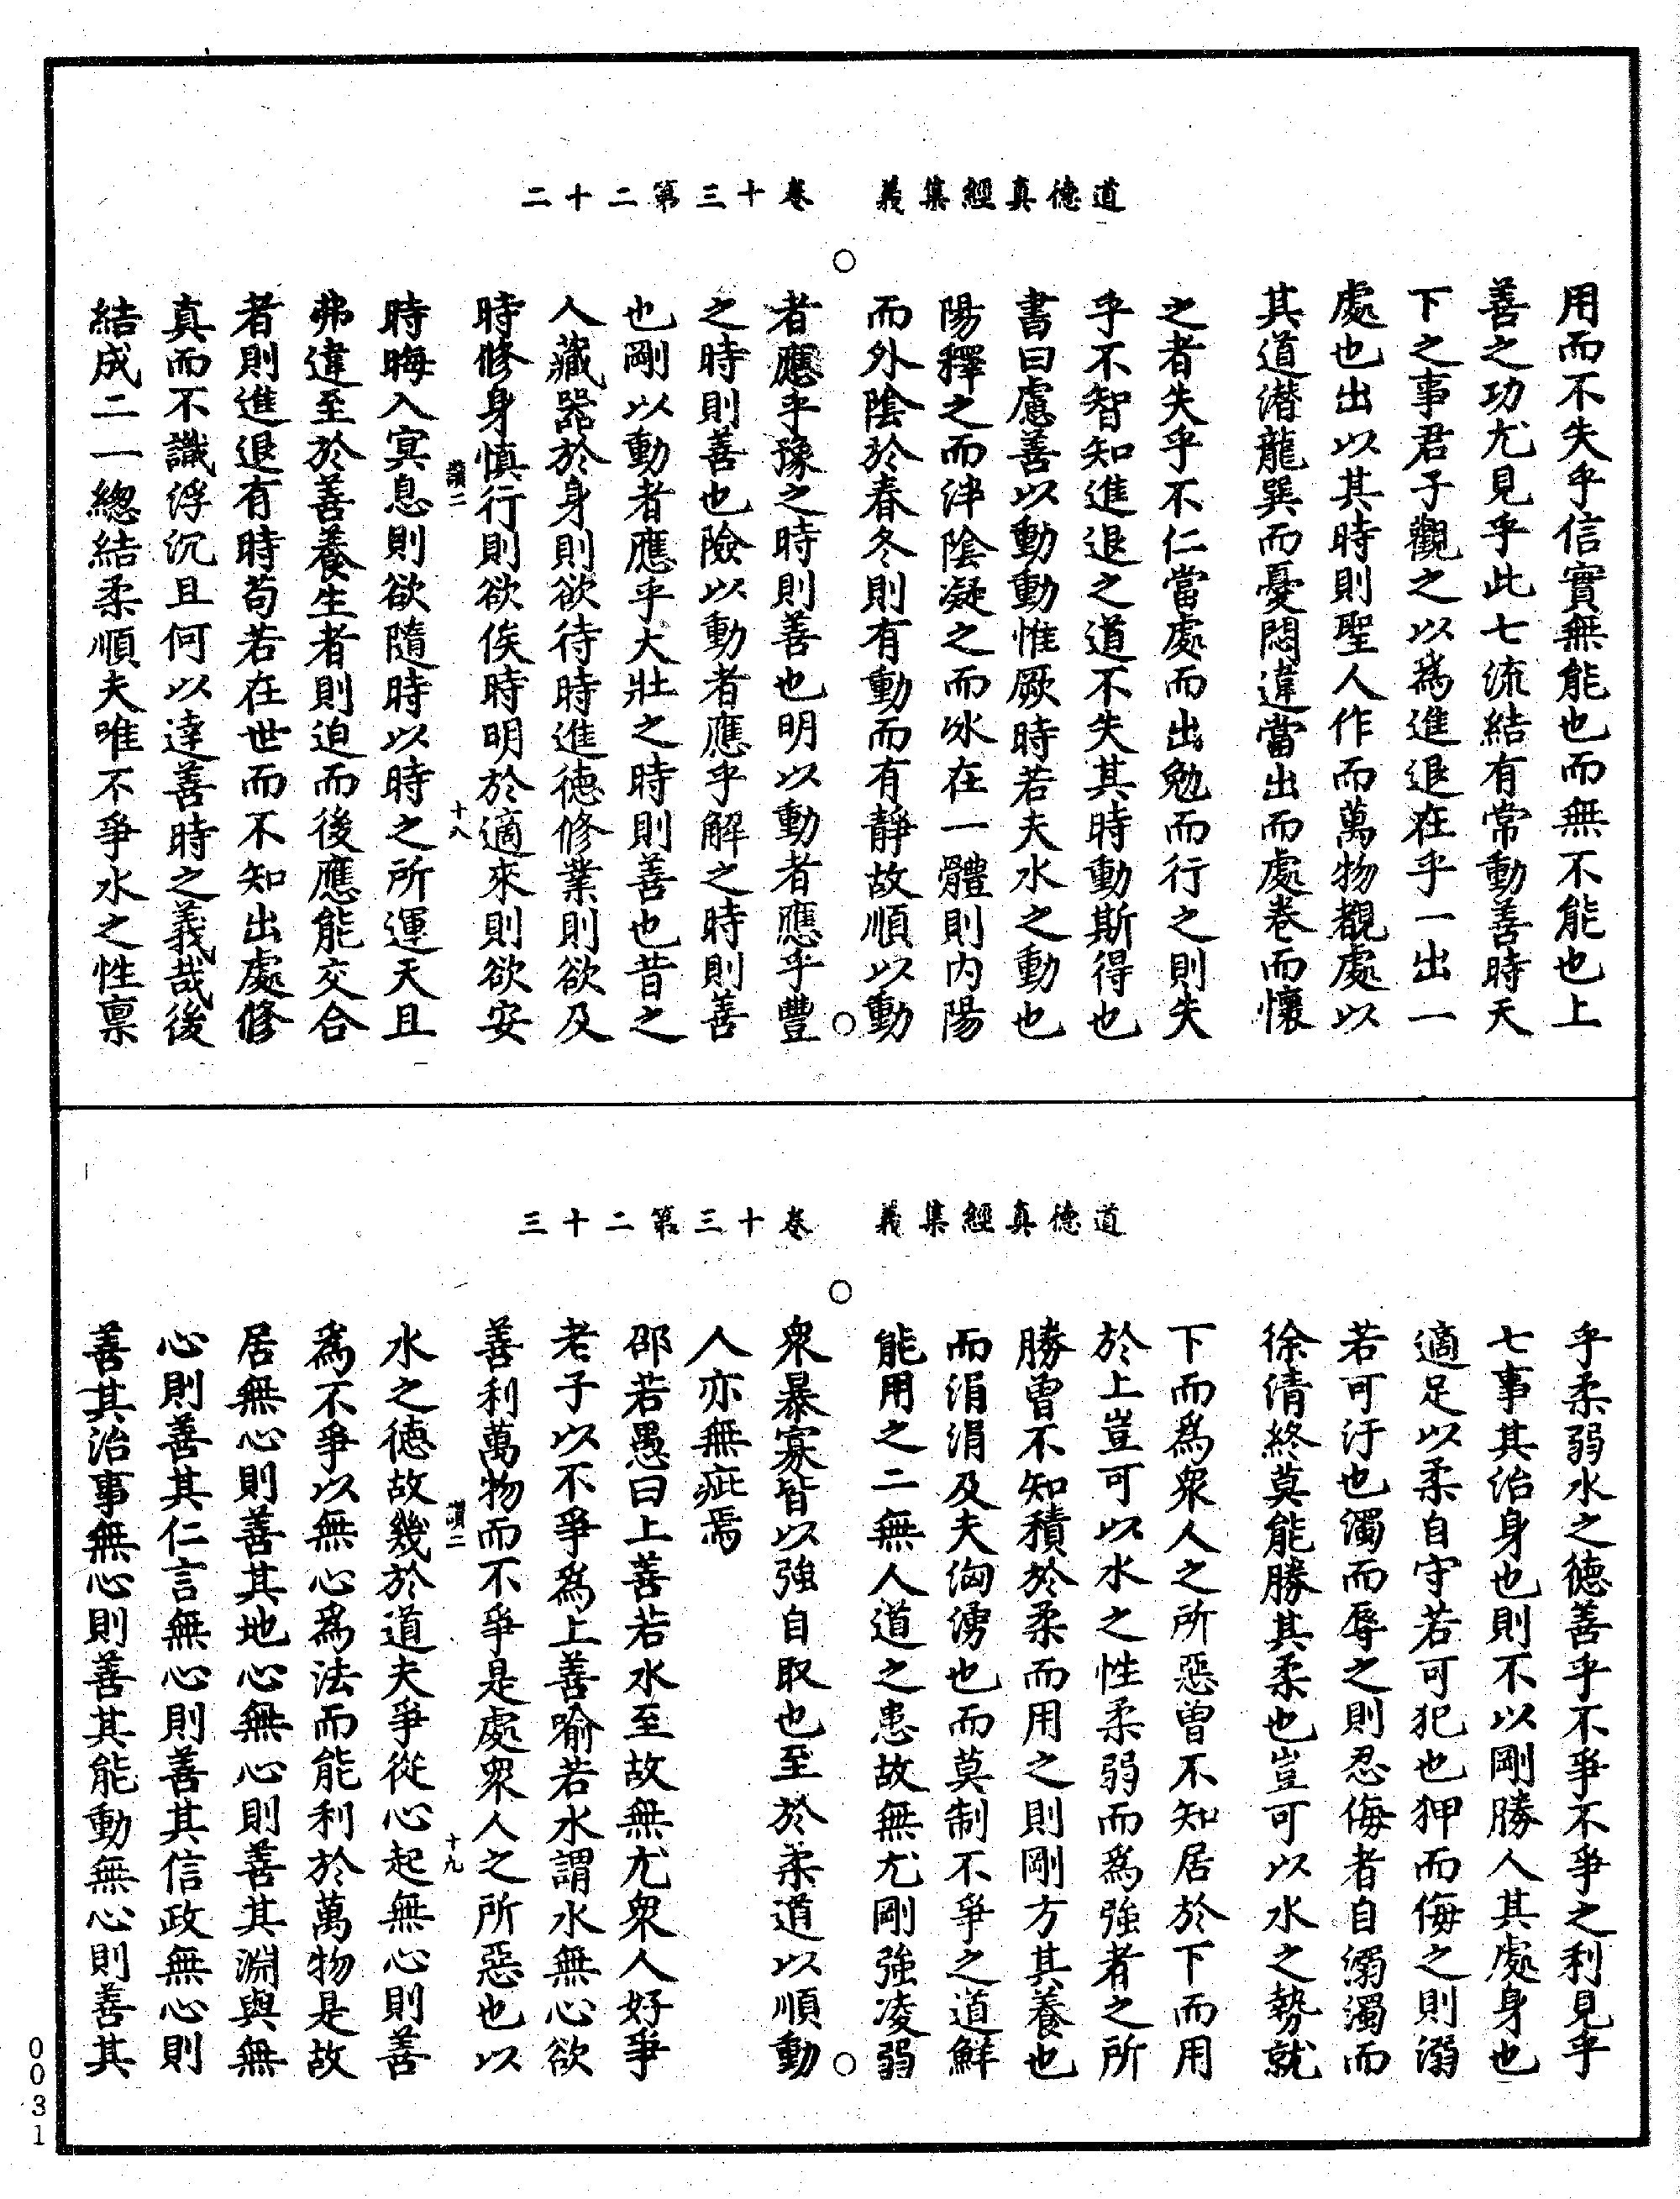 道德真經集義　卷十三第二十二
用而不失乎信實無能也而無不能也上
善之功尤見乎此七流結有常動善時天
下之事君子觀之以為進退在乎一出一
處也出以其時則聖人作而萬物覩處以
其道潛龍巽而憂悶違當出而處卷而懷
之者失乎不仁當處而出勉而行之則失
乎不智知進退之道不失其時動斯得也
書曰慮善以動動惟厥時若夫水之動也
陽釋之而泮陰凝之而冰在一體則內陽
而外陰於春冬則有動而有靜故順以動
者應乎豫之時則善也明以動者應乎豐
之時則善也險以動者應乎解之時則善
也剛以動者應乎大壯之時則善也昔之
人藏器於身則欲待時進德修業則欲及
時修身慎行則欲俟時明於適來則欲安
讚二　十八
時晦入冥息則欲隨時以時之所運天且
弗違至於善養生者則迫而後應能交合
者則進退有時苟若在世而不知出處修
真而不識浮沉且何以達善時之義哉後
結成二一總結柔順夫唯不爭水之性稟
道德真經集義　卷十三第二十三
乎柔弱水之德善乎不爭不爭之利見乎
七事其治身也則不以剛勝人其處身也
適足以柔自守若可犯也狎而侮之則溺
若可汙也濁而辱之則忍侮者自溺濁而
徐清終莫能勝其柔也豈可以水之勢就
下而為眾人之所惡曾不知居於下而用
於上豈可以水之性柔弱而為強者之所
勝曾不知積於柔而用之則剛方其養也
而涓涓及夫洶湧也而莫制不爭之道鮮
能用之二無人道之患故無尤剛強凌弱
眾暴寡皆以強自取也至於柔道以順動
人亦無疵焉
邵若愚曰上善若水至故無尤眾人好爭
老子以不爭為上善喻若水謂水無心欲
善利萬物而不爭是處眾人之所惡也以
讚二　十九
水之德故幾於道夫爭從心起無心則善
為不爭以無心為法而能利於萬物是故
居無心則善其地心無心則善其淵與無
心則善其仁言無心則善其信政無心則
善其治事無心則善其能動無心則善其
0031